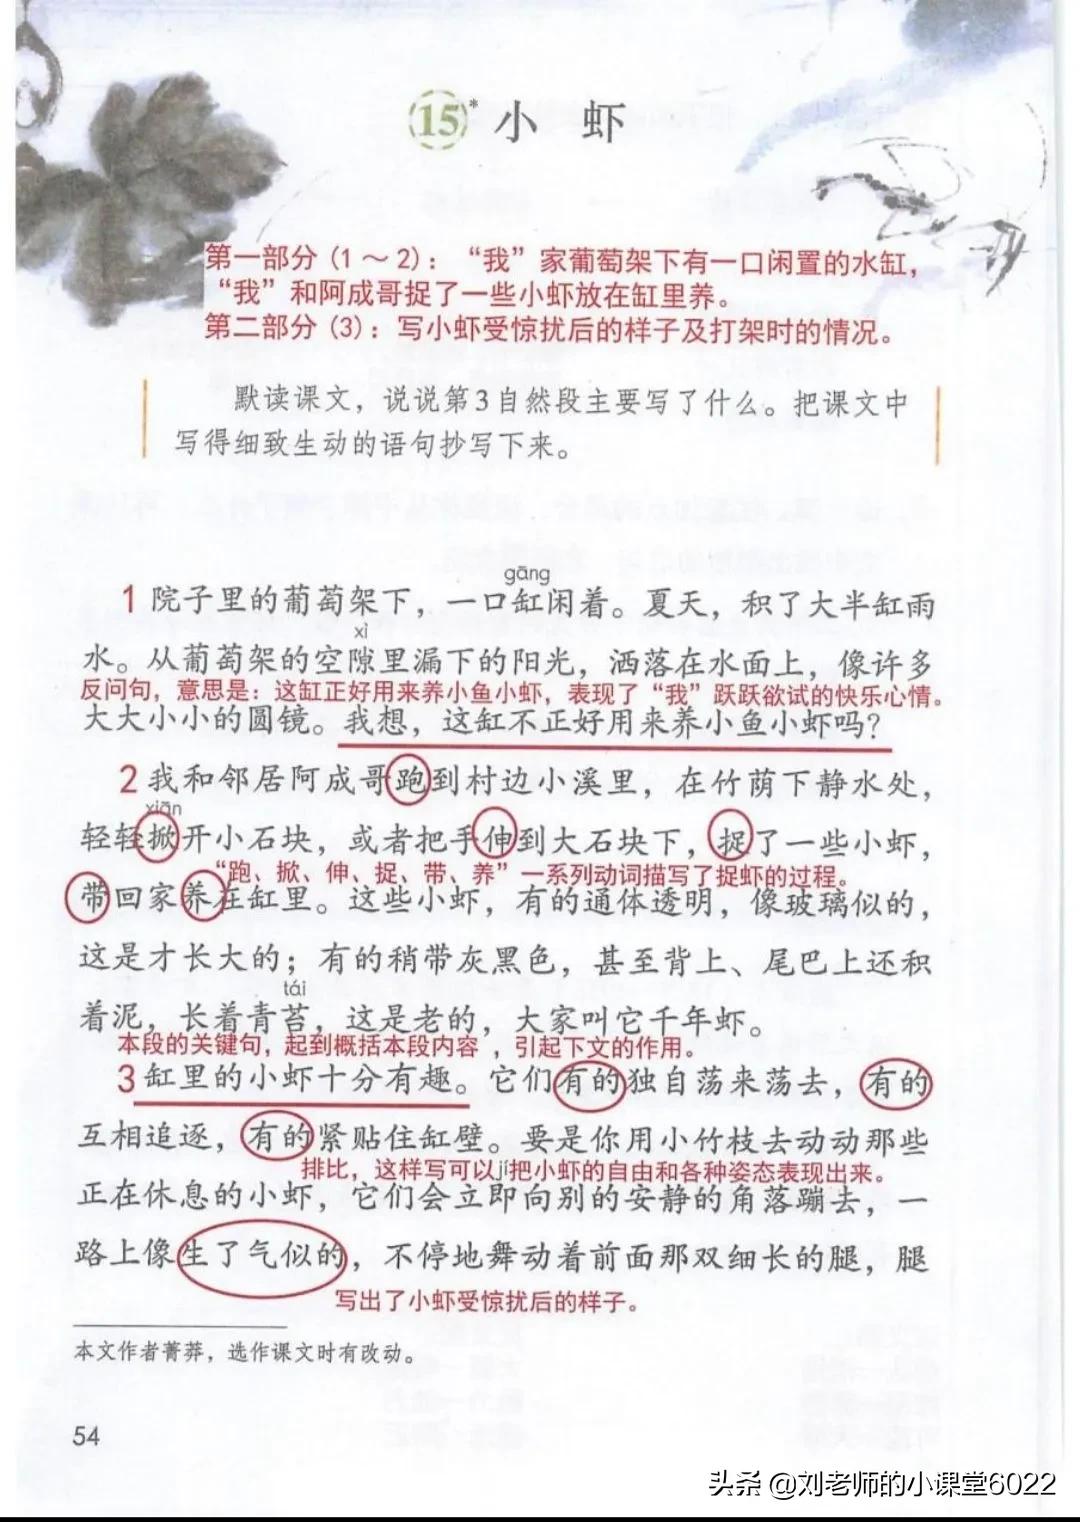 15* 小虾
第一部分（1～2）：“我”家葡萄架下有一口闲置的水缸，
“我”和阿成哥捉了一些小虾放在缸里养。
第二部分（3）：写小虾受惊扰后的样子及打架时的情况。
默读课文，说说第3自然段主要写了什么。把课文中
写得细致生动的语句抄写下来。
gāng
1 院子里的葡萄架下，一口缸闲着。夏天，积了大半缸雨
xì
水。从葡萄架的空隙里漏下的阳光，洒落在水面上，像许多
反问句，意思是：这缸正好用来养小鱼小虾，表现了“我”跃跃欲试的快乐心情。
大大小小的圆镜。我想，这缸不正好用来养小鱼小虾吗？
2 我和邻居阿成哥跑到村边小溪里，在竹荫下静水处，
xiān
轻轻掀开小石块，或者把手伸到大石块下，捉了一些小虾，
“跑、掀、伸、捉、带、养”一系列动词描写了捉虾的过程。
带回家养在缸里。这些小虾，有的通体透明，像玻璃似的，
这是才长大的；有的稍带灰黑色，甚至背上、尾巴上还积
tái
着泥，长着青苔，这是老的，大家叫它千年虾。
本段的关键句，起到概括本段内容，引起下文的作用。
3 缸里的小虾十分有趣。它们有的独自荡来荡去，有的
互相追逐，有的紧贴住缸壁。要是你用小竹枝去动动那些
排比，这样写可以把小虾的自由和各种姿态表现出来。
jí
正在休息的小虾，它们会立即向别的安静的角落蹦去，一
路上像生了气似的，不停地舞动着前面那双细长的腿，腿
写出了小虾受惊扰后的样子。
本文作者菁莽，选作课文时有改动。
54
头条 @刘老师的小课堂6022